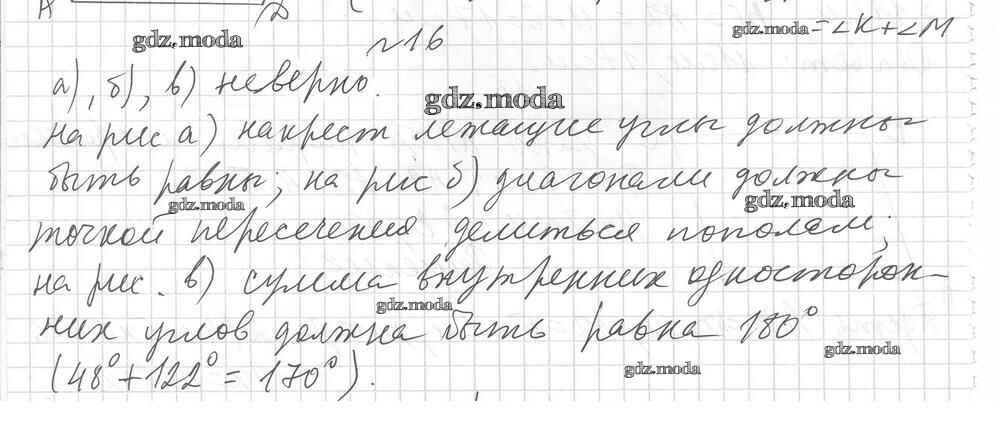 gdz.moda = ∠K+∠M
gdz.moda
№16
а), б), в) неверно.
gdz.moda
на рис а) накрест лежащие углы должны
быть равны; на рис б) диагонали должны
gdz.moda
gdz.moda
точкой пересечения делиться пополам;
на рис. в) сумма внутренних односторон-
gdz.moda
них углов должна быть равна 180°
gdz.moda
(48°+122° = 170°).
gdz.moda